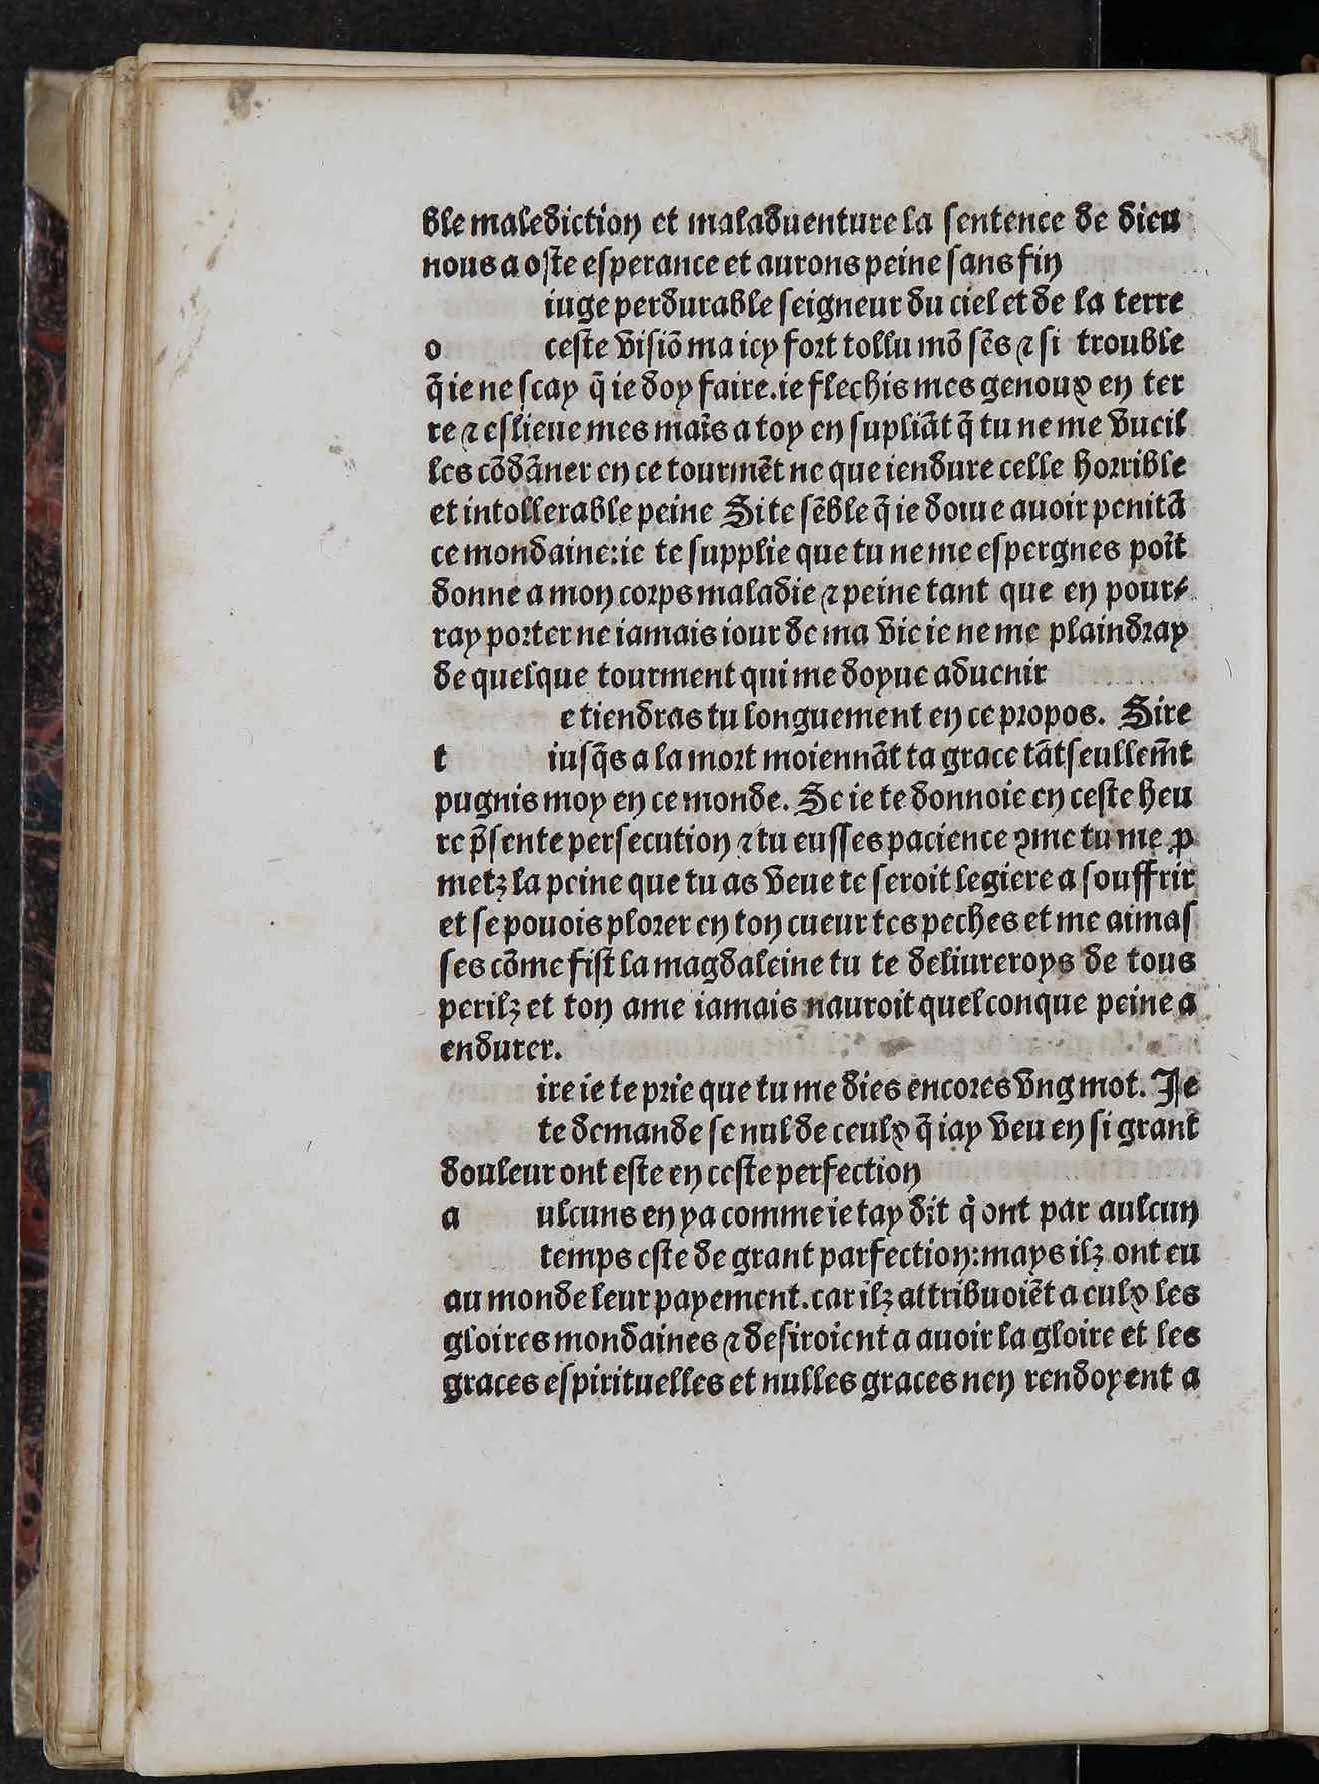 ble malediction et maladuenture la sentence de dieu
nous a oste esperance et aurons peine sans fin
iuge perdurable seigneur du ciel et de la terre
o ceste visiō ma icy fort tollu mō sēs ⁊ si trouble
q̄ ie ne scay q̄ ie doy faire. ie flechis mes genoux en ter
re ⁊ eslieue mes maīs a toy en supliāt q̄ tu ne me vueil
les cōdāner en ce tourmēt ne que iendure celle horrible
et intollerable peine Si te sēble q̄ ie doiue auoir penitā
ce mondaine: ie te supplie que tu ne me espergnes poīt
donne a mon corps maladie ⁊ peine tant que en pour⸗
ray porter ne iamais iour de ma vie ie ne me plaindray
de quelque tourment qui me doyue aduenir
e tiendras tu longuement en ce propos. Sire
t iusq̄s a la mort moiennāt ta grace tāt seullem̄t
pugnis moy en ce monde. Se ie te donnoie en ceste heu
re p̄sente persecution ⁊ tu eusses pacience ꝯme tu me ꝓ
metz la peine que tu as veue te seroit legiere a souffrir
et se pouois plorer en ton cueur tes peches et me aimas
ses cōme fist la magdaleine tu te deliureroys de tous
perilz et ton ame iamais nauroit quelconque peine a
endurer.
ire ie te prie que tu me dies encores vng mot. Je
te demande se nul de ceulx q̄ iay veu en si grant
douleur ont este en ceste perfection
a ulcuns en ya comme ie tay dit q̇ ont par aulcun
temps este de grant parfection: mays ilz ont eu
au monde leur payement. car ilz attribuoiēt a eulx les
gloires mondaines ⁊ desiroient a auoir la gloire et les
graces espirituelles et nulles graces nen rendoyent a